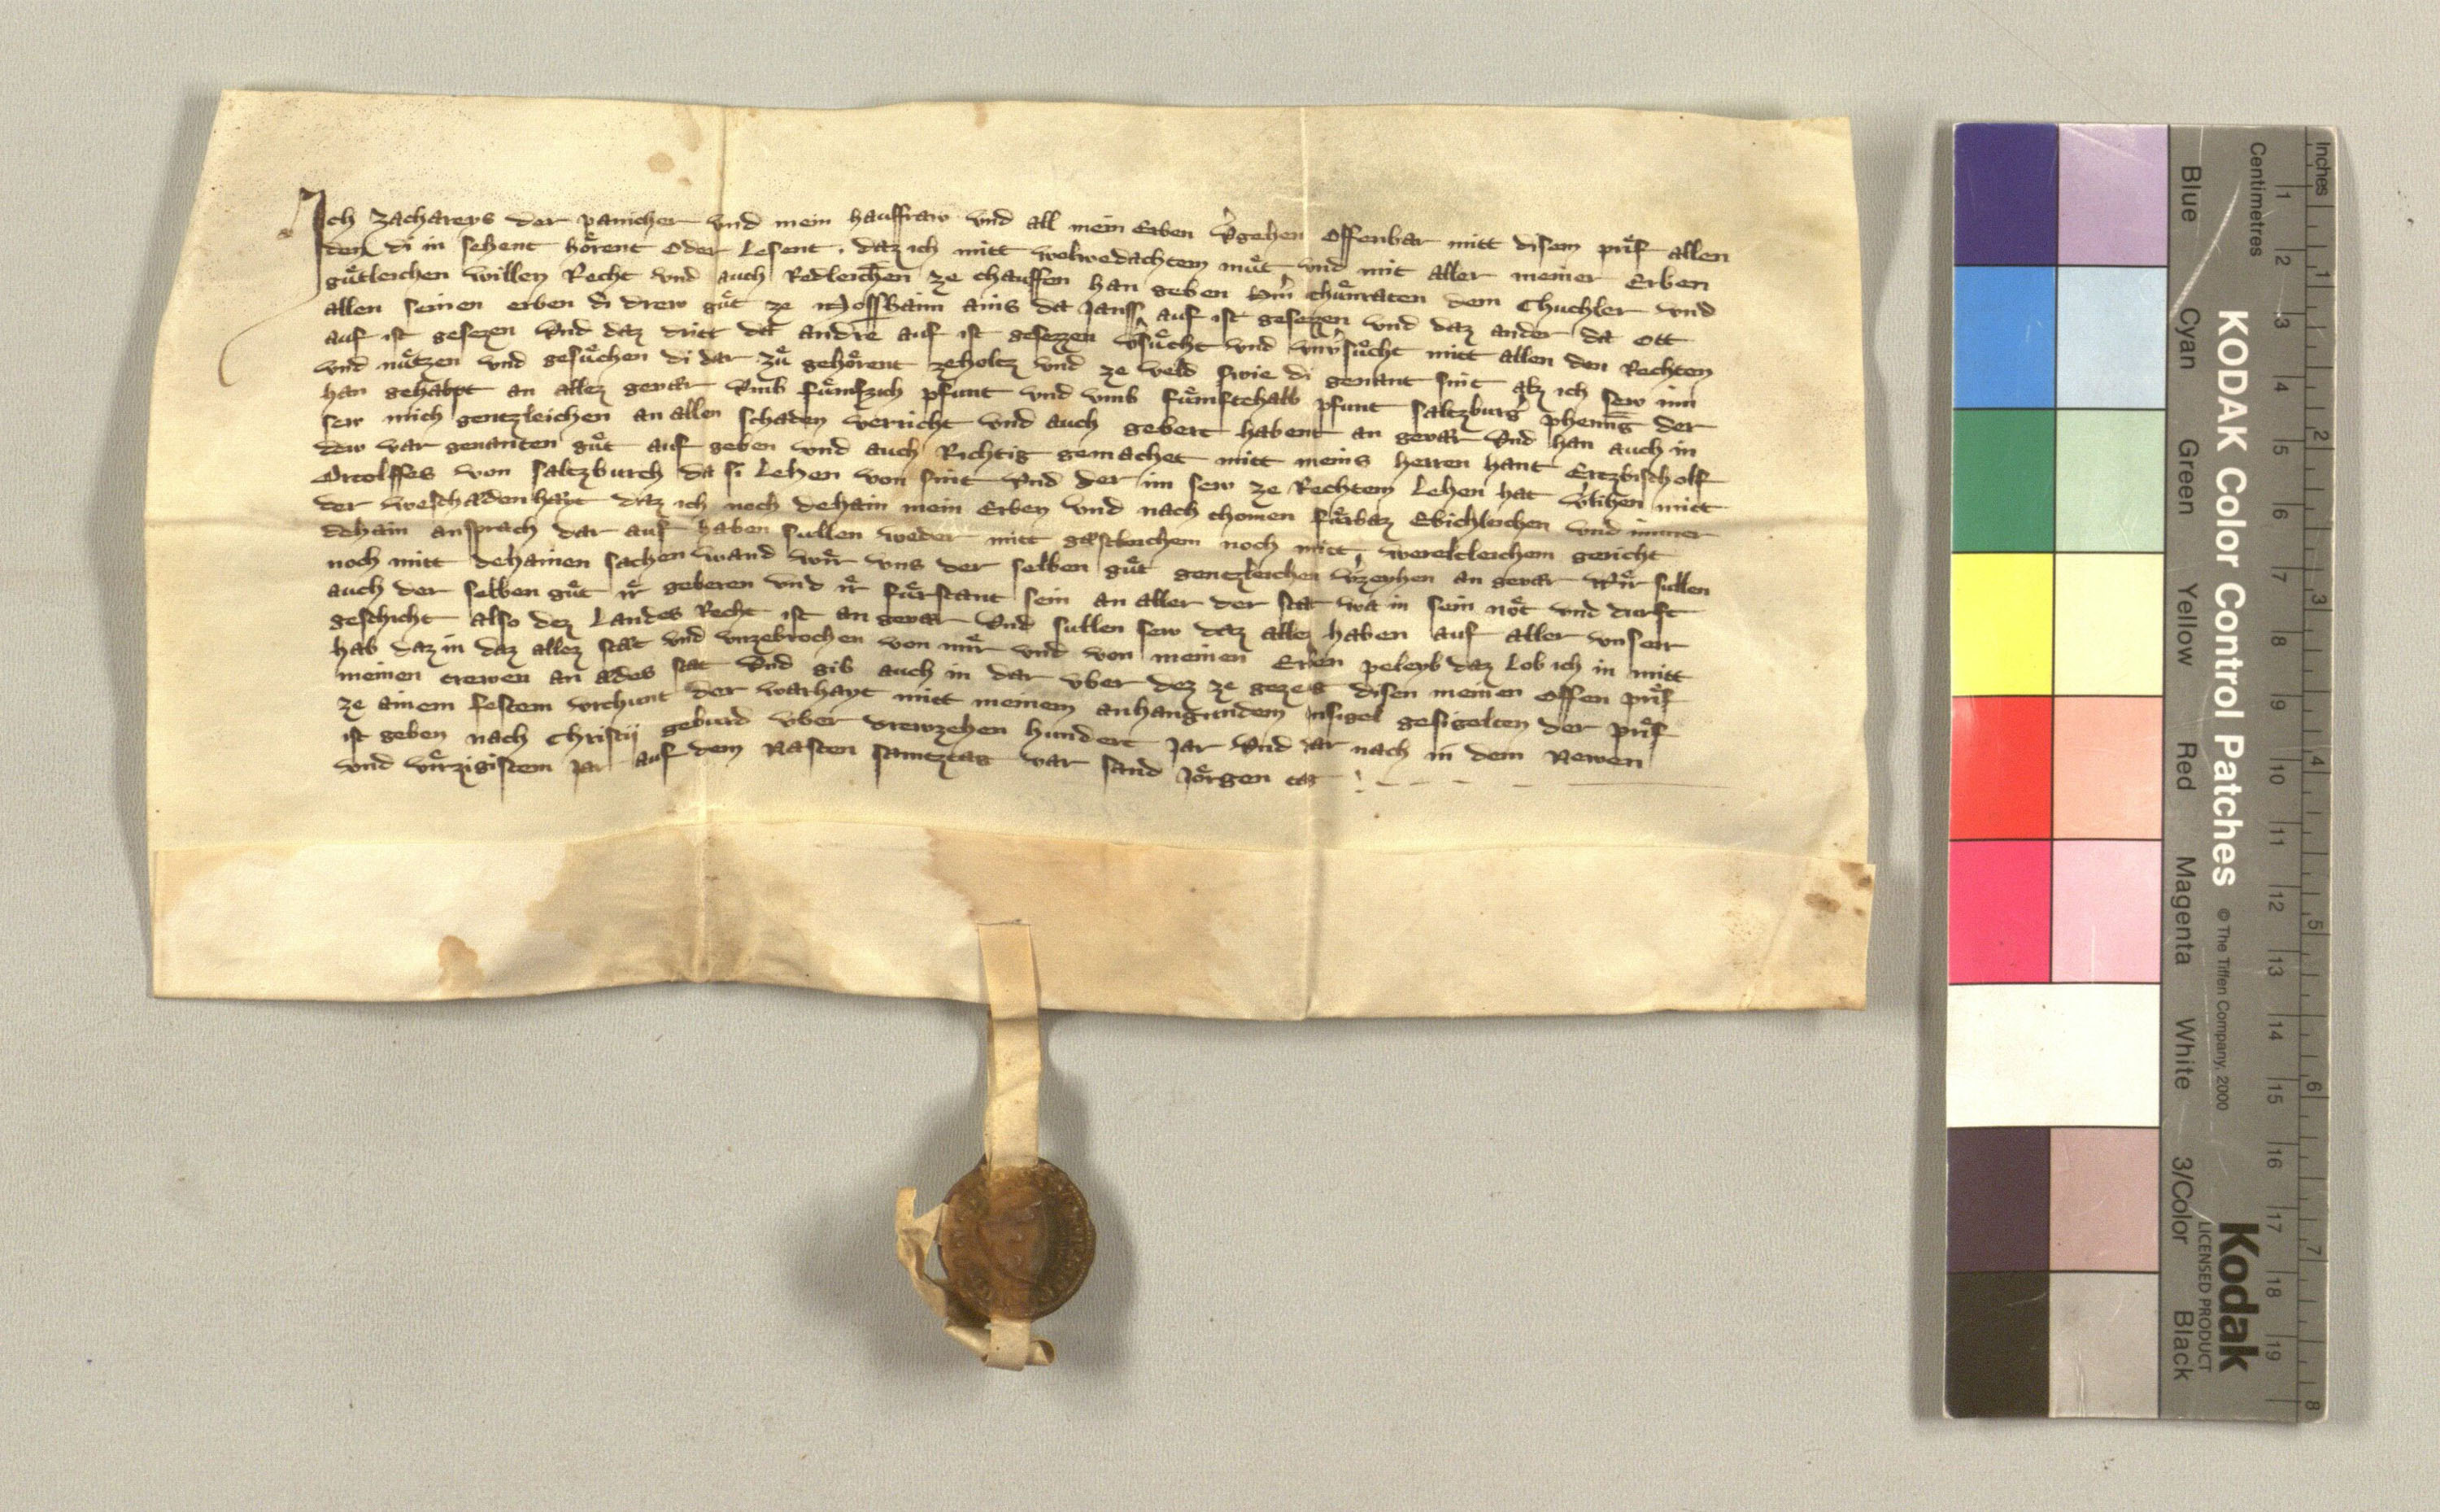 Ich Zachareys der panicher vnd mein hauffraw vnd all mein Erben v̓gehen offenbar mitt disem průf allen
den di in sehent hörent oder Lesent. daz ich mitt wolwedachtem můt vnd mit aller meiner Erben
gůtleichen willen Recht vnd auch Redleichen ze chauffen han geben chůnraten dem Chuchler vnd
allen seinen erben di drew gůt ze ains da Janss auf ist gesezen vnd daz ander da ott
auf ist gesezen vnd daz dritt da andre auf ist gesezzen v̓sůcht vnd vnv̓sůcht mitt allen den Rechten
vnd nůtzen vnd gesůchen di dar zů gehörent zeholtz vnd ze veld swie di genant sint alz ich sew inn
han gehabpt an allez gevär vmb fůmfzich pfunt vnd vmb fůmftehalb pfunt saltzburg̓ phenn̄g der
sew mich gentzleichen an allen schaden verricht vnd auch gebert habent an gevär vnd han auch in
dew var genanten gůt auf geben vnd auch Richtig gemachet mitt meins herren hant Ertzbischolf
Ortolffes von saltzburch da si Lehen von sint vnd der im sew ze Rechtem Lehen hat v̓lihen mitt
der weschaidenhayt daz ich noch dehain mein Erben vnd nach chomen fůrbaz Ebichleichen vnd immer
dehain ansprach dar auf haben sullen weder mitt gaestleichem noch mitt wereltleichem gericht
noch mitt dehainen sachen wand wir vns der selben gůt gentzleichen v̓zeyhen an gevar Wir sullen
auch der selben gůt ir geberen vnd ir fůrstant sein an aller der stat wa in sein not vnd durft
geschicht also dez Landes Recht ist an gevar vnd sullen sew daz allez haben auf aller vnserr
hab daz in daz allez stät vnd vnzebrochen von mir vnd von meinen Erben peleyb daz Lob ich in mitt
meinen trewen an aides stat vnd gib auch in dar vber dez ze gezeug disen meinen offen prif
ze ainem festem vrchunt der warhayt mitt meinem anhangundem insigel gesigelten der prif
ist geben nach Christij geburd vber drewzehen hundert Jar vnd dar nach in dem Newen
vnd virzigistem Jar auf dem Nasten samcztag var sand Jörgen tag
KODAK Color Control Patches
© The Tiffen Company, 2000
Kodak
LICENSED PRODUCT
Blue Cyan Green Yellow Red Magenta White 3/Color Black
Inches 1 2 3 4 5 6 7 8
Centimetres 1 2 3 4 5 6 7 8 9 10 11 12 13 14 15 16 17 18 19